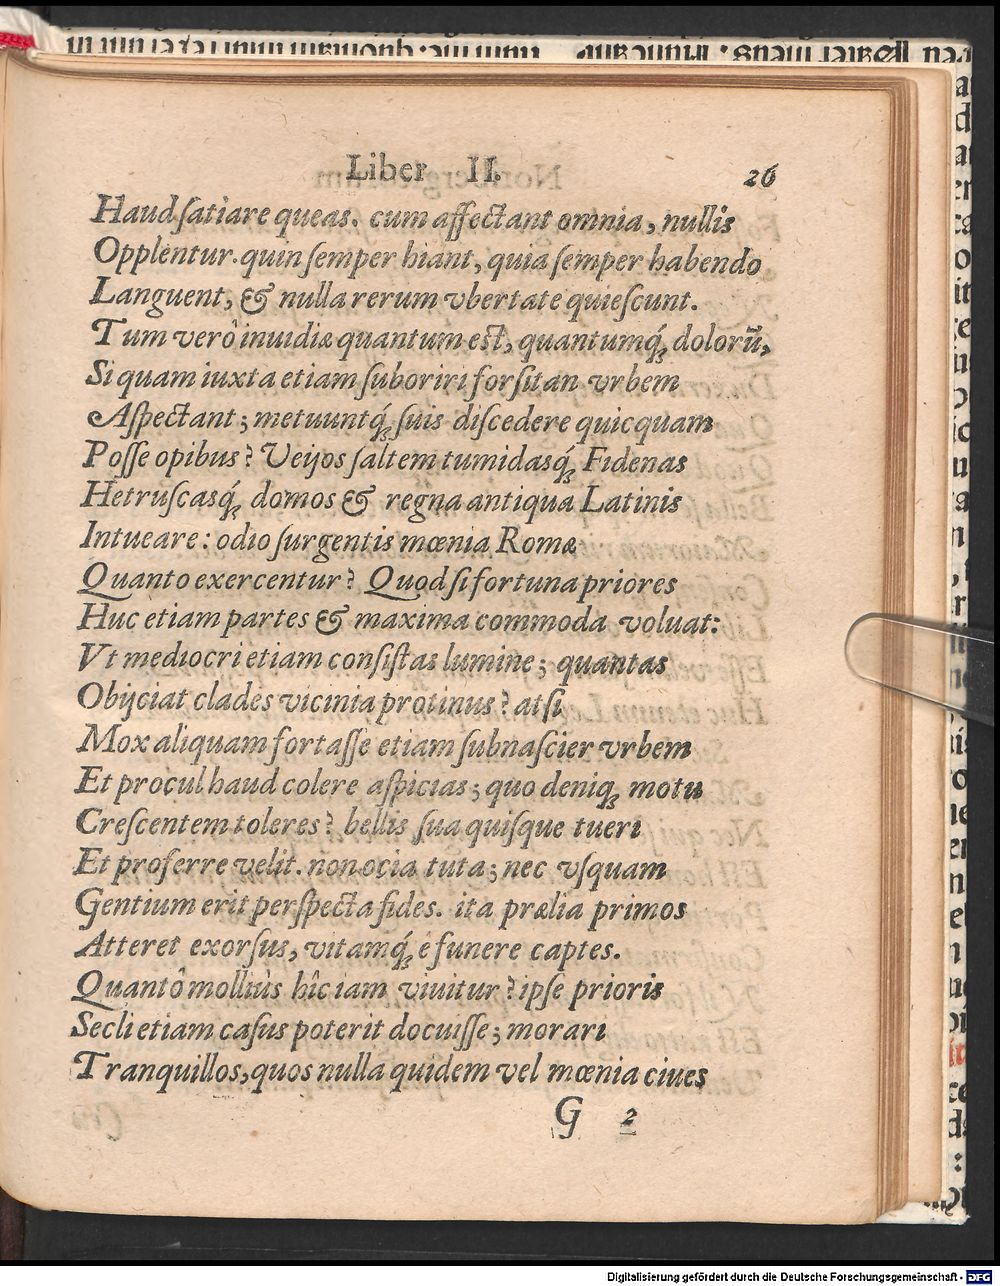 Liber II. 26
Haud ſatiare queas. cum affectant omnia, nullis
Opplentur. quin ſemper hiant, quia ſemper habendo
Languent, & nulla rerum vbertate quieſcunt.
Tum verô inuidiæ quantum est, quantumq́; dolorũ,
Si quam iuxta etiam ſuboriri forſitan vrbem
Aſpectant; metuuntq́; ſuis diſcedere quicquam
Poſſe opibus? Veijos ſaltem tumidasq́; Fidenas
Hetruſcasq́; domos & regna antiqua Latinis
Intueare: odio ſurgentis mœnia Romæ
Quanto exercentur? Quod ſi fortuna priores
Huc etiam partes & maxima commoda voluat:
Vt mediocri etiam conſiſtas lumine; quantas
Obijciat clades vicinia protinus? at ſi
Mox aliquam fortaſſe etiam ſubnaſcier vrbem
Et procul haud colere aſpicias; quo deniq; motu
Creſcentem toleres? bellis ſua quiſque tueri
Et proferre velit. non ocia tuta; nec vſquam
Gentium erit perſpecta fides. ita prælia primos
Atteret exorſus, vitamq́; è funere captes.
Quantô molliùs hîc iam viuitur? ipſe prioris
Secli etiam caſus poterit docuiſſe; morari
Tranquillos, quos nulla quidem vel mœnia ciues
G 2
Digitalisierung gefördert durch die Deutsche Forschungsgemeinschaft - DFG